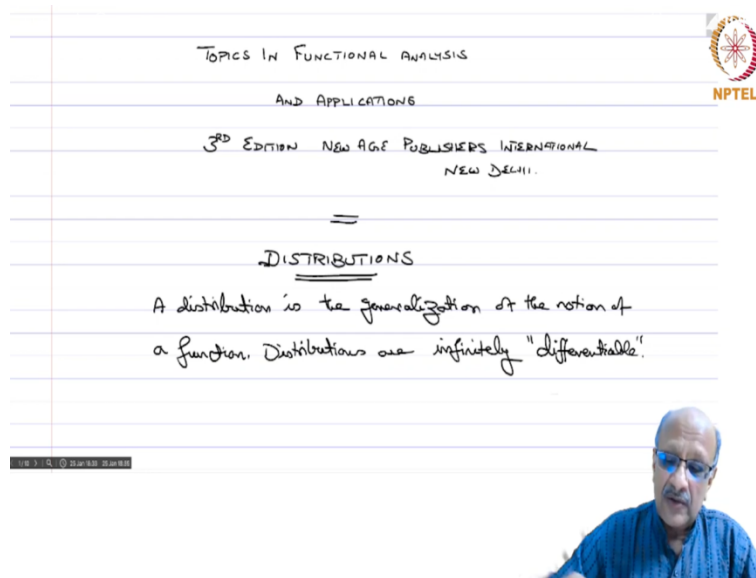 TOPICS IN FUNCTIONAL ANALYSIS
NPTEL
AND APPLICATIONS
3RD EDITION NEW AGE PUBLISHERS INTERNATIONAL
NEW DELHI.
DISTRIBUTIONS
A distribution is the generalization of the notion of
a function. Distributions are infinitely "differentiable".